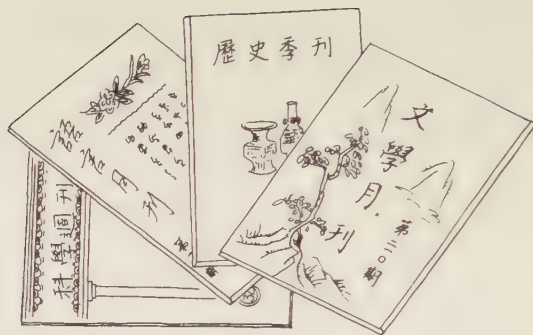 歷史季刊
文學月刊
第二〇期
語言月刊
科學週刊